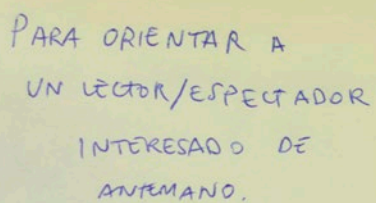 PARA ORIENTAR A
UN LECTOR/ESPECTADOR
INTERESADO DE
ANTEMANO.